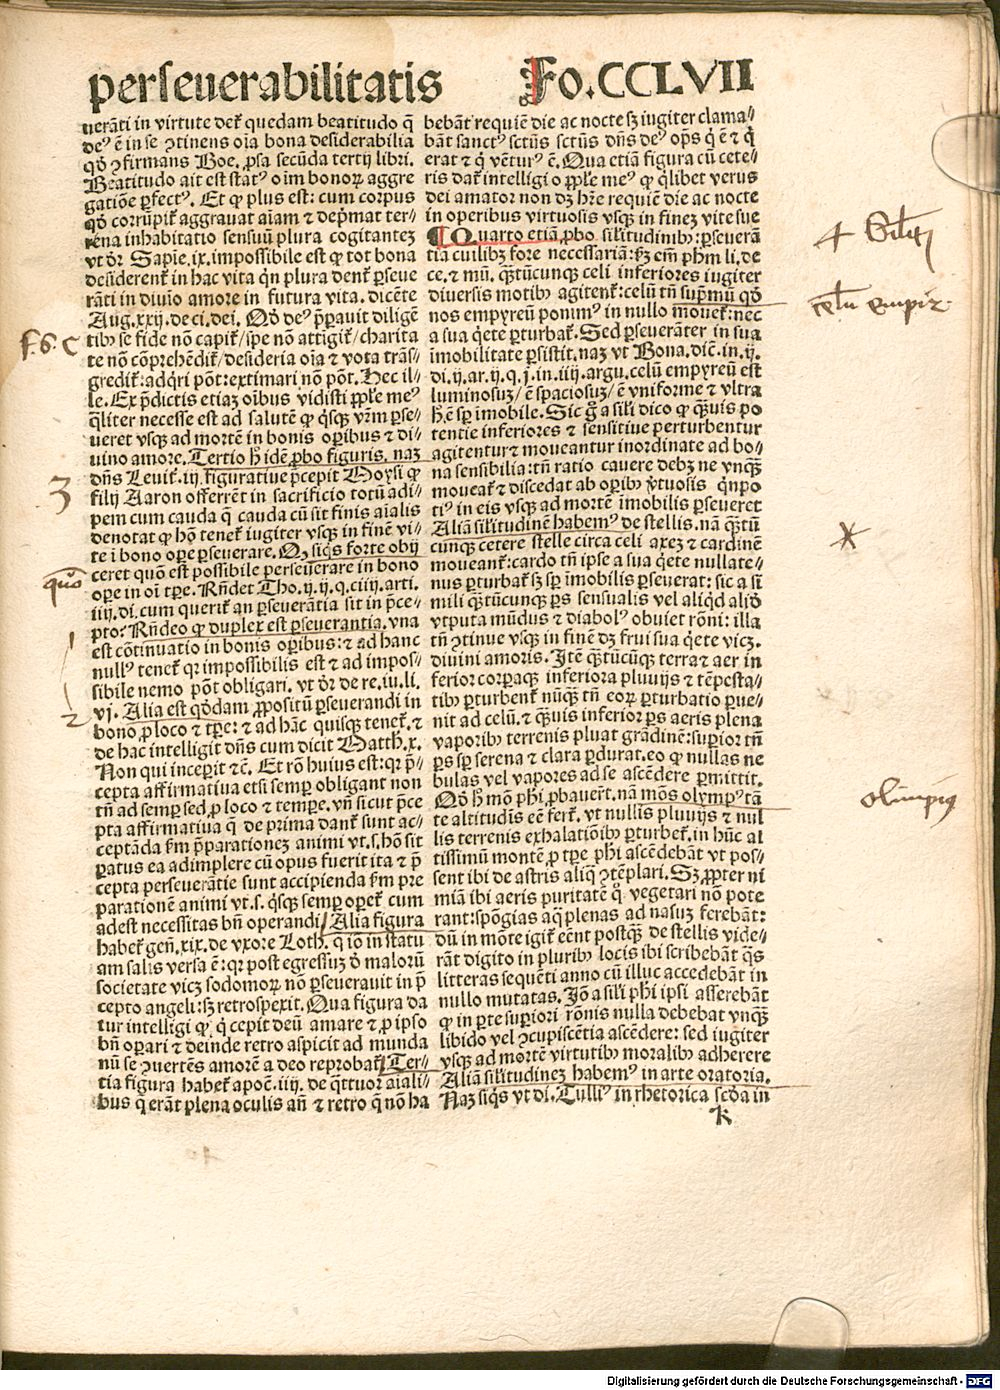 perseuerabilitatis
Fo.CCLVII
uerãti in virtute deꝭ quedam beatitudo q̃
deꝰ ẽ in se ꝯtinens oĩa bona desiderabilia
qđ ꝯfirmans Boe. ꝓsa secũda tertij libri.
Beatitudo ait est statꝰ oĩm bonoꝝ aggre
gatiõe ꝑfectꝰ. Et ꝙ plus est: cum corpus
qđ corrũpiť aggrauat aĩam ⁊ dep̃mat ter⸗
rena inhabitatio sensuũ plura cogitanteʒ
vt đr Sapĩe.ix. impossibile est ꝙ tot bona
desiderenť in hac vita qͥn plura denť ꝑseue
rãti in diuĩo amore in futura vita. dicẽte
Aug.xxij. de ci. dei. Qđ deꝰ p̃parauit diligẽ
tibꝰ se fide nõ capiť/ spe nõ attigiť/ charita
te nõ cõprehẽdiť/ desideria oĩa ⁊ vota trãs⸗
grediť: adq̃ri põt: extimari nõ põt. Hec il⸗
le. Ex p̃dictis etiaʒ oĩbus vidisti ꝓpl̃e meꝰ
q̃liter necesse est ad salutẽ ꝙ qͥsqꝫ vr̃m ꝑse⸗
ueret vsqꝫ ad mortẽ in bonis oꝑibus ⁊ di⸗
uino amore. Tertio ħ idẽ ꝓbo figuris. naʒ
dñs Leuiť. iij. figuratiue p̃cepit Moysi ꝙ
filij Aaron offerrẽt in sacrificio totũ adi⸗
pem cum cauda q̃ cauda cũ sit finis aĩalis
denotat ꝙ hõ teneť iugiter vsqꝫ in finẽ vi⸗
te ĩ bono oꝑe ꝑseuerare. Qꝫ siqͥs forte obij
ceret quõ est possibile perseuerare in bono
oꝑe in oĩ tꝑe. Rñdet Tho. ij. ij. q. ciiij. arti.
iiij. di. cum queriť an ꝑseuerãtia sit in p̃ce⸗
pto? Rñdeo ꝙ duplex est ꝑseuerantia. vna
est cõtinuatio in bonis oꝑibus: ⁊ ad hanc
nullꝰ teneť qꝛ impossibilis est ⁊ ad impos⸗
sibile nemo põt obligari. vt đr de re. iu. li.
vj. Alia est qđdam ꝓpositũ ꝑseuerandi in
bono ꝓ loco ⁊ tꝑe: ⁊ ad hãc quisqꝫ teneť. ⁊
de hac intelligit dñs cum dicit Matth.x.
Non qui inceperit ⁊c̃. Et rõ huius est: qꝛ p̃⸗
cepta affirmatiua etsi semper obligant non
tñ ad semper sed ꝓ loco ⁊ tempere. vñ sicut p̃ce
pta affirmatiua q̃ de prima danť sunt ac⸗
ceptãda ẜm p̃parationeʒ animi vt.s. hõ sit
ꝑatus ea adimplere cũ opus fuerit ita ⁊ p̃
cepta perseuerãtie sunt accipienda ẜm pre
parationẽ animi vt.s. qͥsqꝫ semꝑ opeť cum
adest necessitas bñ operandi. Alia figura
habeť geñ.xix. de vxore Loth. q̃ iõ in statu
am salis versa ẽ: qꝛ post egressuʒ đ maloꝝ
societate vicʒ sodomoꝝ nõ ꝑseuerauit in p̃
cepto angeli: sʒ retrospexit. Qua figura da
tur intelligi ꝙ qͥ cepit deũ amare ⁊ ꝓ ipso
bñ oꝑari ⁊ deinde retro aspicit ad munda
nũ se ꝯuertẽs amorẽ a deo reprobať. Ter⸗
tia figura habeť apoč. iiij. de qͣttuor aĩali⸗
bus q̃ erãt plena oculis añ ⁊ retro q̃ nõ ha
bebãt requiẽ die ac nocte sʒ iugiter clama⸗
bãt sanctꝰ sctũs sctũs dñs deꝰ ops q̃ ẽ ⁊ q̃
erat ⁊ q̃ vẽturꝰ ẽ. Qua etiã figura cũ cete⸗
ris dať intelligi o ꝓpl̃e meꝰ ꝙ qͥlibet verus
dei amator non dʒ hr̃e requiẽ die ac nocte
in operibus virtuosis vsqꝫ in fineʒ vite sue
¶ Quarto etiã ꝓbo silitudinibꝰ: ꝑseuerã
tia cuilibʒ fore necessariã: ẜʒ em̃ ph̃m li. de
ce. ⁊ mũ. qͣʒtũcunqꝫ celi inferiores iugiter
diuersis motibꝰ agitenť: celũ tñ sup̃mũ qđ
nos empyreũ ponimꝰ in nullo moueť: nec
a sua qͥete ꝑturbať. Sed ꝑseuerãter in sua
imobilitate ꝑsistit. naʒ vt Bona. diĉ. in. ij.
di. ij. ar. ij. q. j. in. iiij. argu. celũ empyreũ est
luminosuʒ/ ẽ spaciosuʒ/ ẽ vniforme ⁊ vltra
hẽ sꝑ imobile. Sic g̃ a sili dico ꝙ qͣʒuis po
tentie inferiores ⁊ sensitiue perturbentur
agitentur⁊ moueantur inordinate ad bo⸗
na sensibilia: tñ ratio cauere debʒ ne vnqͣʒ
moueať ⁊ discedat ab oꝑibꝰ v̾tuosis qͥnpo
tiꝰ in eis vsqꝫ ad mortẽ ĩmobilis ꝑseueret
Aliã silitudinẽ habemꝰ de stellis. nã qͣʒtũ
cunqꝫ cetere stelle circa celi axeʒ ⁊ cardinẽ
moueanť: cardo tñ ipse a sua qͥete nullate⸗
nus ꝑturbať sʒ sꝑ ĩmobilis ꝑseuerat: sic a si
mili qͣʒtũcunqꝫ ꝑs sensualis vel aliqͥd aliđ
vtputa mũdus ⁊ diabolꝰ obuiet rõni: illa
tñ ꝯtinue vsqꝫ in finẽ dʒ frui sua qͥete vicʒ.
diuini amoris. Itẽ qͣʒtũcũqꝫ terra ⁊ aer in
ferior corꝑaqꝫ inferiora pluuijs ⁊ tẽpesta⸗
tibꝰ ꝑturbenť nũqͣʒ tñ eoꝝ ꝑturbatio ꝑue⸗
nit ad celũ. ⁊ qͣʒuis inferior ꝑs aeris plena
vaporibꝰ terrenis pluat grãdinẽ: suꝑior tñ
ꝑs sꝑ serena ⁊ clara ꝑdurat. eo ꝙ nullas ne
bulas vel vapores ad se ascẽdere ꝑmittit.
Qđ ħ mõ phi ꝓbauerť. nã mõs olympꝰ tã
te altitudĩs eẽ ferť. vt nullis pluuijs ⁊ nul
lis terrenis exhalatiõibꝰ ꝑturbeť. in hũc al
tissimũ montẽ ꝓ tꝑe phi ascẽdebãt vt pos⸗
sent ibi de astris aliqͥ ꝯtẽplari. Sʒ ꝓpter ni
miã ibi aeris puritatẽ qͥ vegetari nõ pote
rant: spõgias aq̃ plenas ad nasuʒ ferebãt:
dũ in mõte igiť eẽnt postqͣʒ de stellis vide⸗
rãt digito in pluribꝰ locis ibi scribebãt qͣs
litteras sequẽti anno cũ illuc accedebãt in
nullo mutatas. Iõ a sili phi ipsi asserebãt
ꝙ in ꝑte suꝑiori rõnis nulla debebat vnqͣʒ
libido vel ꝯcupiscẽtia ascẽdere: sed iugiter
vsqꝫ ad mortẽ virtutibꝰ moralibꝰ adherere
Aliã silitudineʒ habemꝰ in arte oratoria.
Naʒ siqͥs vt di. Tulliꝰ in rhetorica scđa in
k
f. 6. C
3
quõ
1
2
4 Silitꝰ
celũ empir.
olimpiꝰ
Digitalisierung gefördert durch die Deutsche Forschungsgemeinschaft - DFG